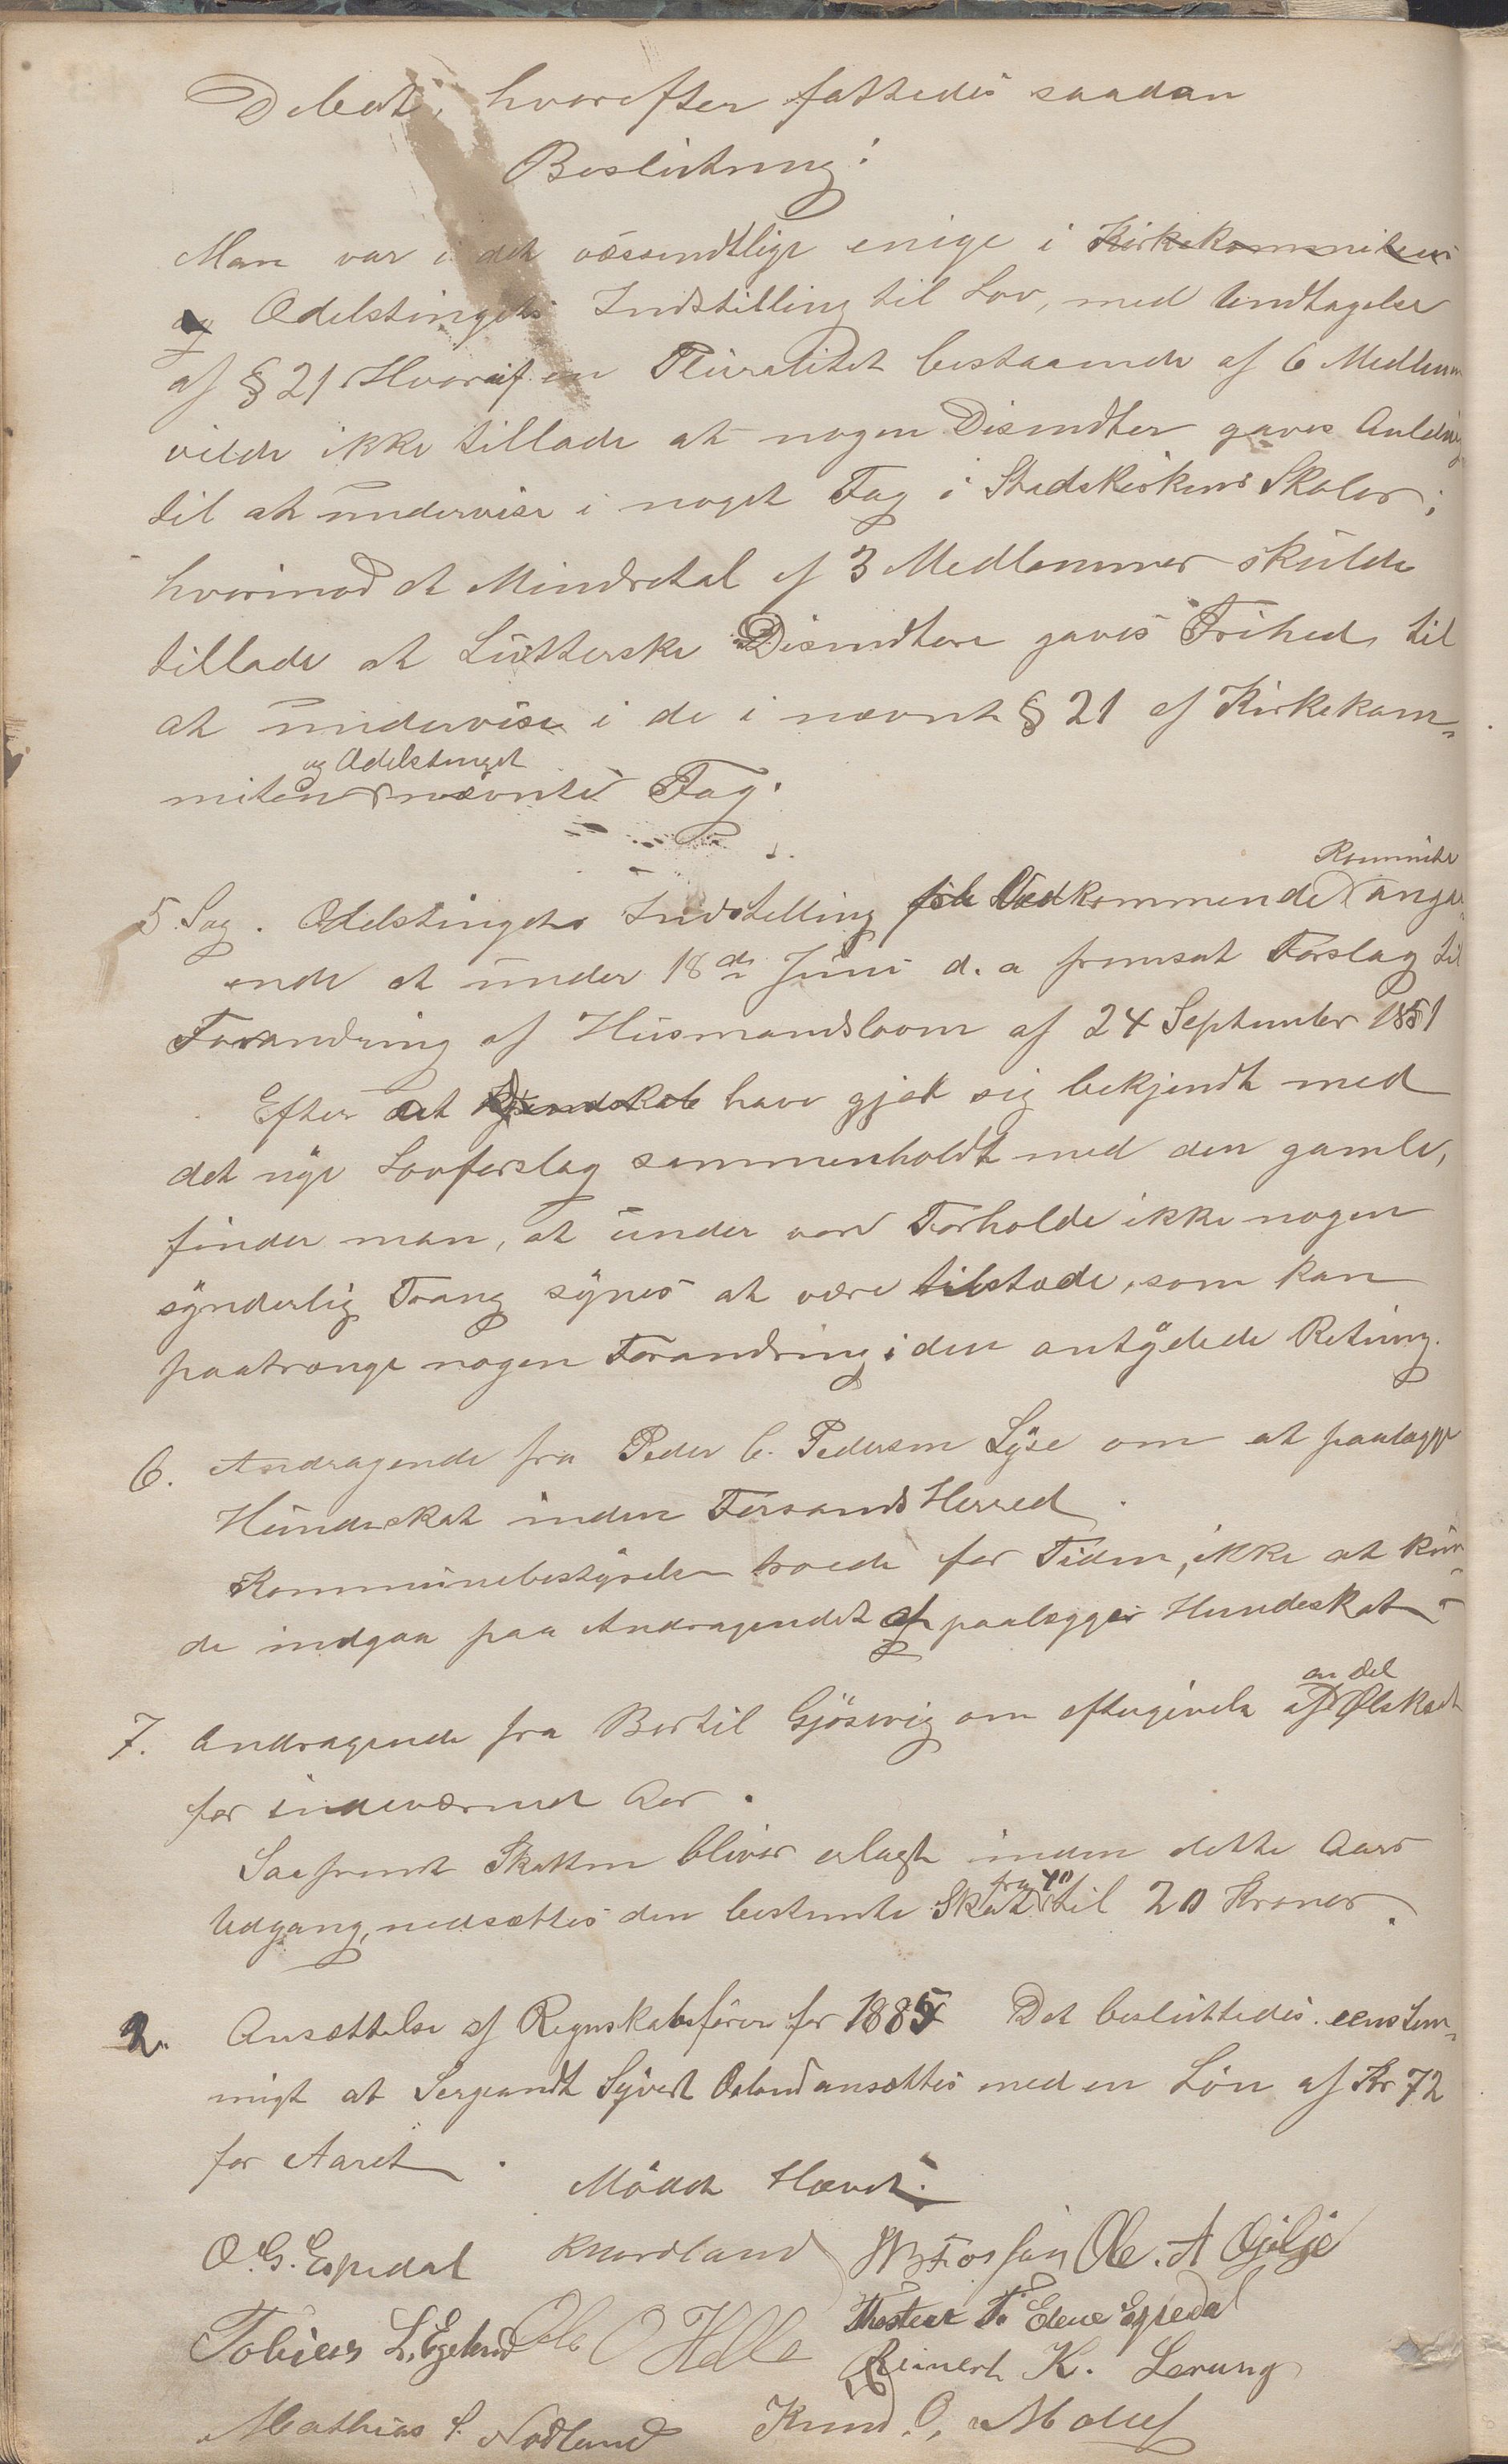 Debat, hvorefter fattedes saadan
Beslutning:
Man var i det væssendtlige enige i Kirkekommiteens
og Odelstingets Indstilling til Lov, med Undtagelse
af § 21 Hvoraf en Pluralitet bestaaende af 6 Medlem
vilde ikke tillade at nogen Disendter gaves Anledning
til at undervise i noget Fag i Stadskirkens Skoler;
hvorimod et Mindretal af 3 Medlemmer skulde
tillade at Lutterske Disendtere gaves Frihed til
at undervise i de i nævnte § 21 af Kirkekom-
og Odelstinget
miteen nævnte Fag.
Kommite
5. Sag. Odelstingets Indstilling fra Vedkommende anga-
ende et under 18de Juni d. a fremsat Forslag til
Forandring af Husmandsloven af 24 September 1851
Efter at Kjendskab have gjort sig bekjendt med
det nye Lovforslag sammenholdt med den gamle,
finder man, at under vore Forholde ikke nogen
synderlig Trang synes at være tilstede, som kan
paatrænge nogen Forandring i den antydede Retning.
6. Andragende fra Peder C. Pedersen Lyse om at paalægge
Hundeskat inden Forsands Herred.
Kommunebestyrelsen troede for Tiden, ikke at kun-
de indgaa paa Andragendet at paalægge Hundeskat
en Del
7. Andragende fra Bertil Gjøsevig om eftergivelse af Ølskat
for indeværende Aar.
Saafremt Skatten bliver erlagt inden dette Aars
fra 40
Udgang, nedsættes den bestemte Skat til 20 Kroner.
2. Ansættelse af Regnskabsfører for 1885 Det besluttedes eenstem-
migt at Sergeandt Syvert Oaland ansættes med en Løn af Kr 72
for Aaret.
Mödet Hævet.
O. G. Espedal KNordland Ole. A Gjilje
Tobias L. Egeland Ole O Helle Thosten T. Eiene Espedal
Reinert K. Lerung
Mathias S. Nodland Knud O. Molles